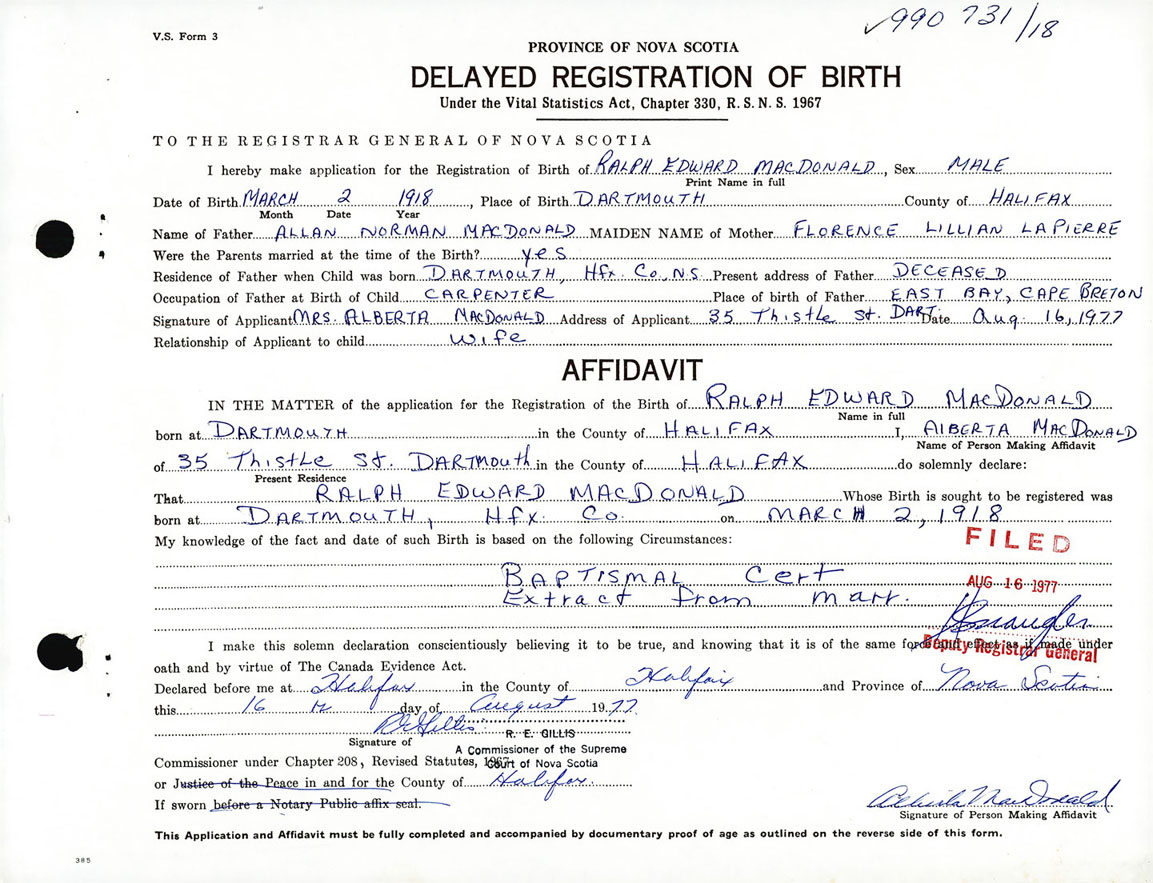 990 731/18
V.S. Form 3
PROVINCE OF NOVA SCOTIA
DELAYED REGISTRATION OF BIRTH
Under the Vital Statistics Act, Chapter 330, R.S.N.S. 1967
TO THE REGISTRAR GENERAL OF NOVA SCOTIA
I hereby make application for the Registration of Birth of RALPH EDWARD MACDONALD, Sex MALE
Print Name in full
Date of Birth MARCH 2 1918, Place of Birth DARTMOUTH County of HALIFAX
Month Date Year
Name of Father ALLAN NORMAN MACDONALD MAIDEN NAME of Mother FLORENCE LILLIAN LAPIERRE
Were the Parents married at the time of the Birth? yes
Residence of Father when Child was born DARTMOUTH, Hfx. Co. N.S. Present address of Father DECEASED
Occupation of Father at Birth of Child CARPENTER Place of birth of Father EAST BAY, CAPE BRETON
Signature of Applicant MRS. ALBERTA MACDONALD Address of Applicant 35 Thistle St. DART. Date Aug. 16, 1977
Relationship of Applicant to child wife
AFFIDAVIT
IN THE MATTER of the application for the Registration of the Birth of RALPH EDWARD MACDONALD
Name in full
born at DARTMOUTH in the County of HALIFAX I, AlBERTA MACDONALD
Name of Person Making Affidavit
of 35 Thistle St. DARTMOUTH in the County of HALIFAX do solemnly declare:
Present Residence
That RALPH EDWARD MACDONALD Whose Birth is sought to be registered was
born at DARTMOUTH, Hfx. Co. on MARCH 2, 1918
My knowledge of the fact and date of such Birth is based on the following Circumstances:
FILED
BAPTISMAL Cert
AUG 16 1977
Extract from marr.
I make this solemn declaration conscientiously believing it to be true, and knowing that it is of the same force and effect as if made under
Deputy Registrar General
oath and by virtue of The Canada Evidence Act.
Declared before me at Halifax in the County of Halifax and Province of Nova Scotia
this 16 th day of August 1977
R E Gillis R. E. GILLIS
Signature of A Commissioner of the Supreme
Commissioner under Chapter 208, Revised Statutes, 1967 Court of Nova Scotia
or Justice of the Peace in and for the County of Halifax.
If sworn before a Notary Public affix seal.
Alberta MacDonald
Signature of Person Making Affidavit
This Application and Affidavit must be fully completed and accompanied by documentary proof of age as outlined on the reverse side of this form.
385